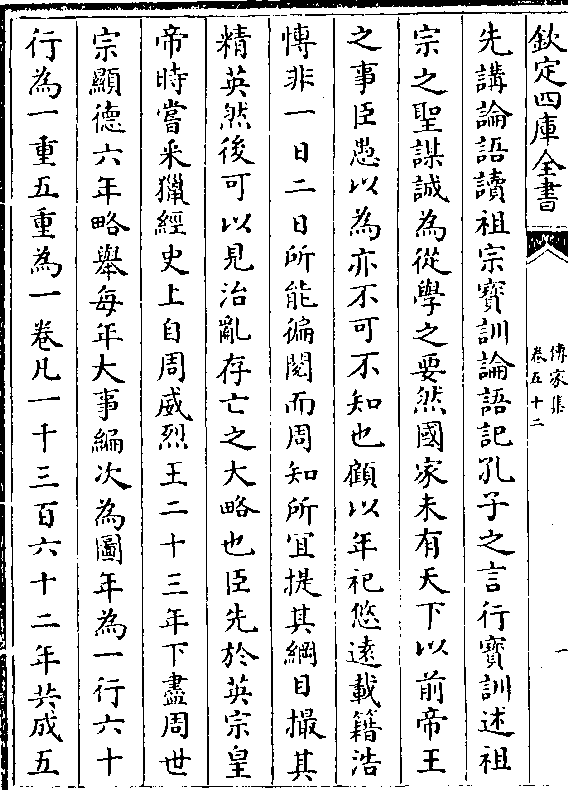 欽定四庫全書
傳家集
卷五十二
一
先講論語讀祖宗寳訓論語記孔子之言行寳訓述祖
宗之聖謀誠為從學之要然國家未有天下以前帝王
之事臣愚以為亦不可不知也顧以年祀悠逺載籍浩
慱非一日二日所能徧閱而周知所宜提其綱目撮其
精英然後可以見治亂存亡之大略也臣先於英宗皇
帝時嘗采獵經史上自周威烈王二十三年下盡周世
宗顯德六年略舉每年大事編次為圖年為一行六十
行為一重五重為一卷凡一千三百六十二年共成五